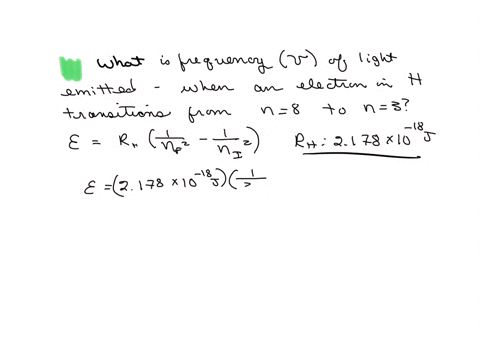 What is frequency (ν) of light
emitted - when an election in H
transitions from n=8 to n=3?
E = R_H (1/n_F² - 1/n_I²) R_H: 2.178 × 10⁻¹⁸ J
E = (2.178 × 10⁻¹⁸ J)(1/